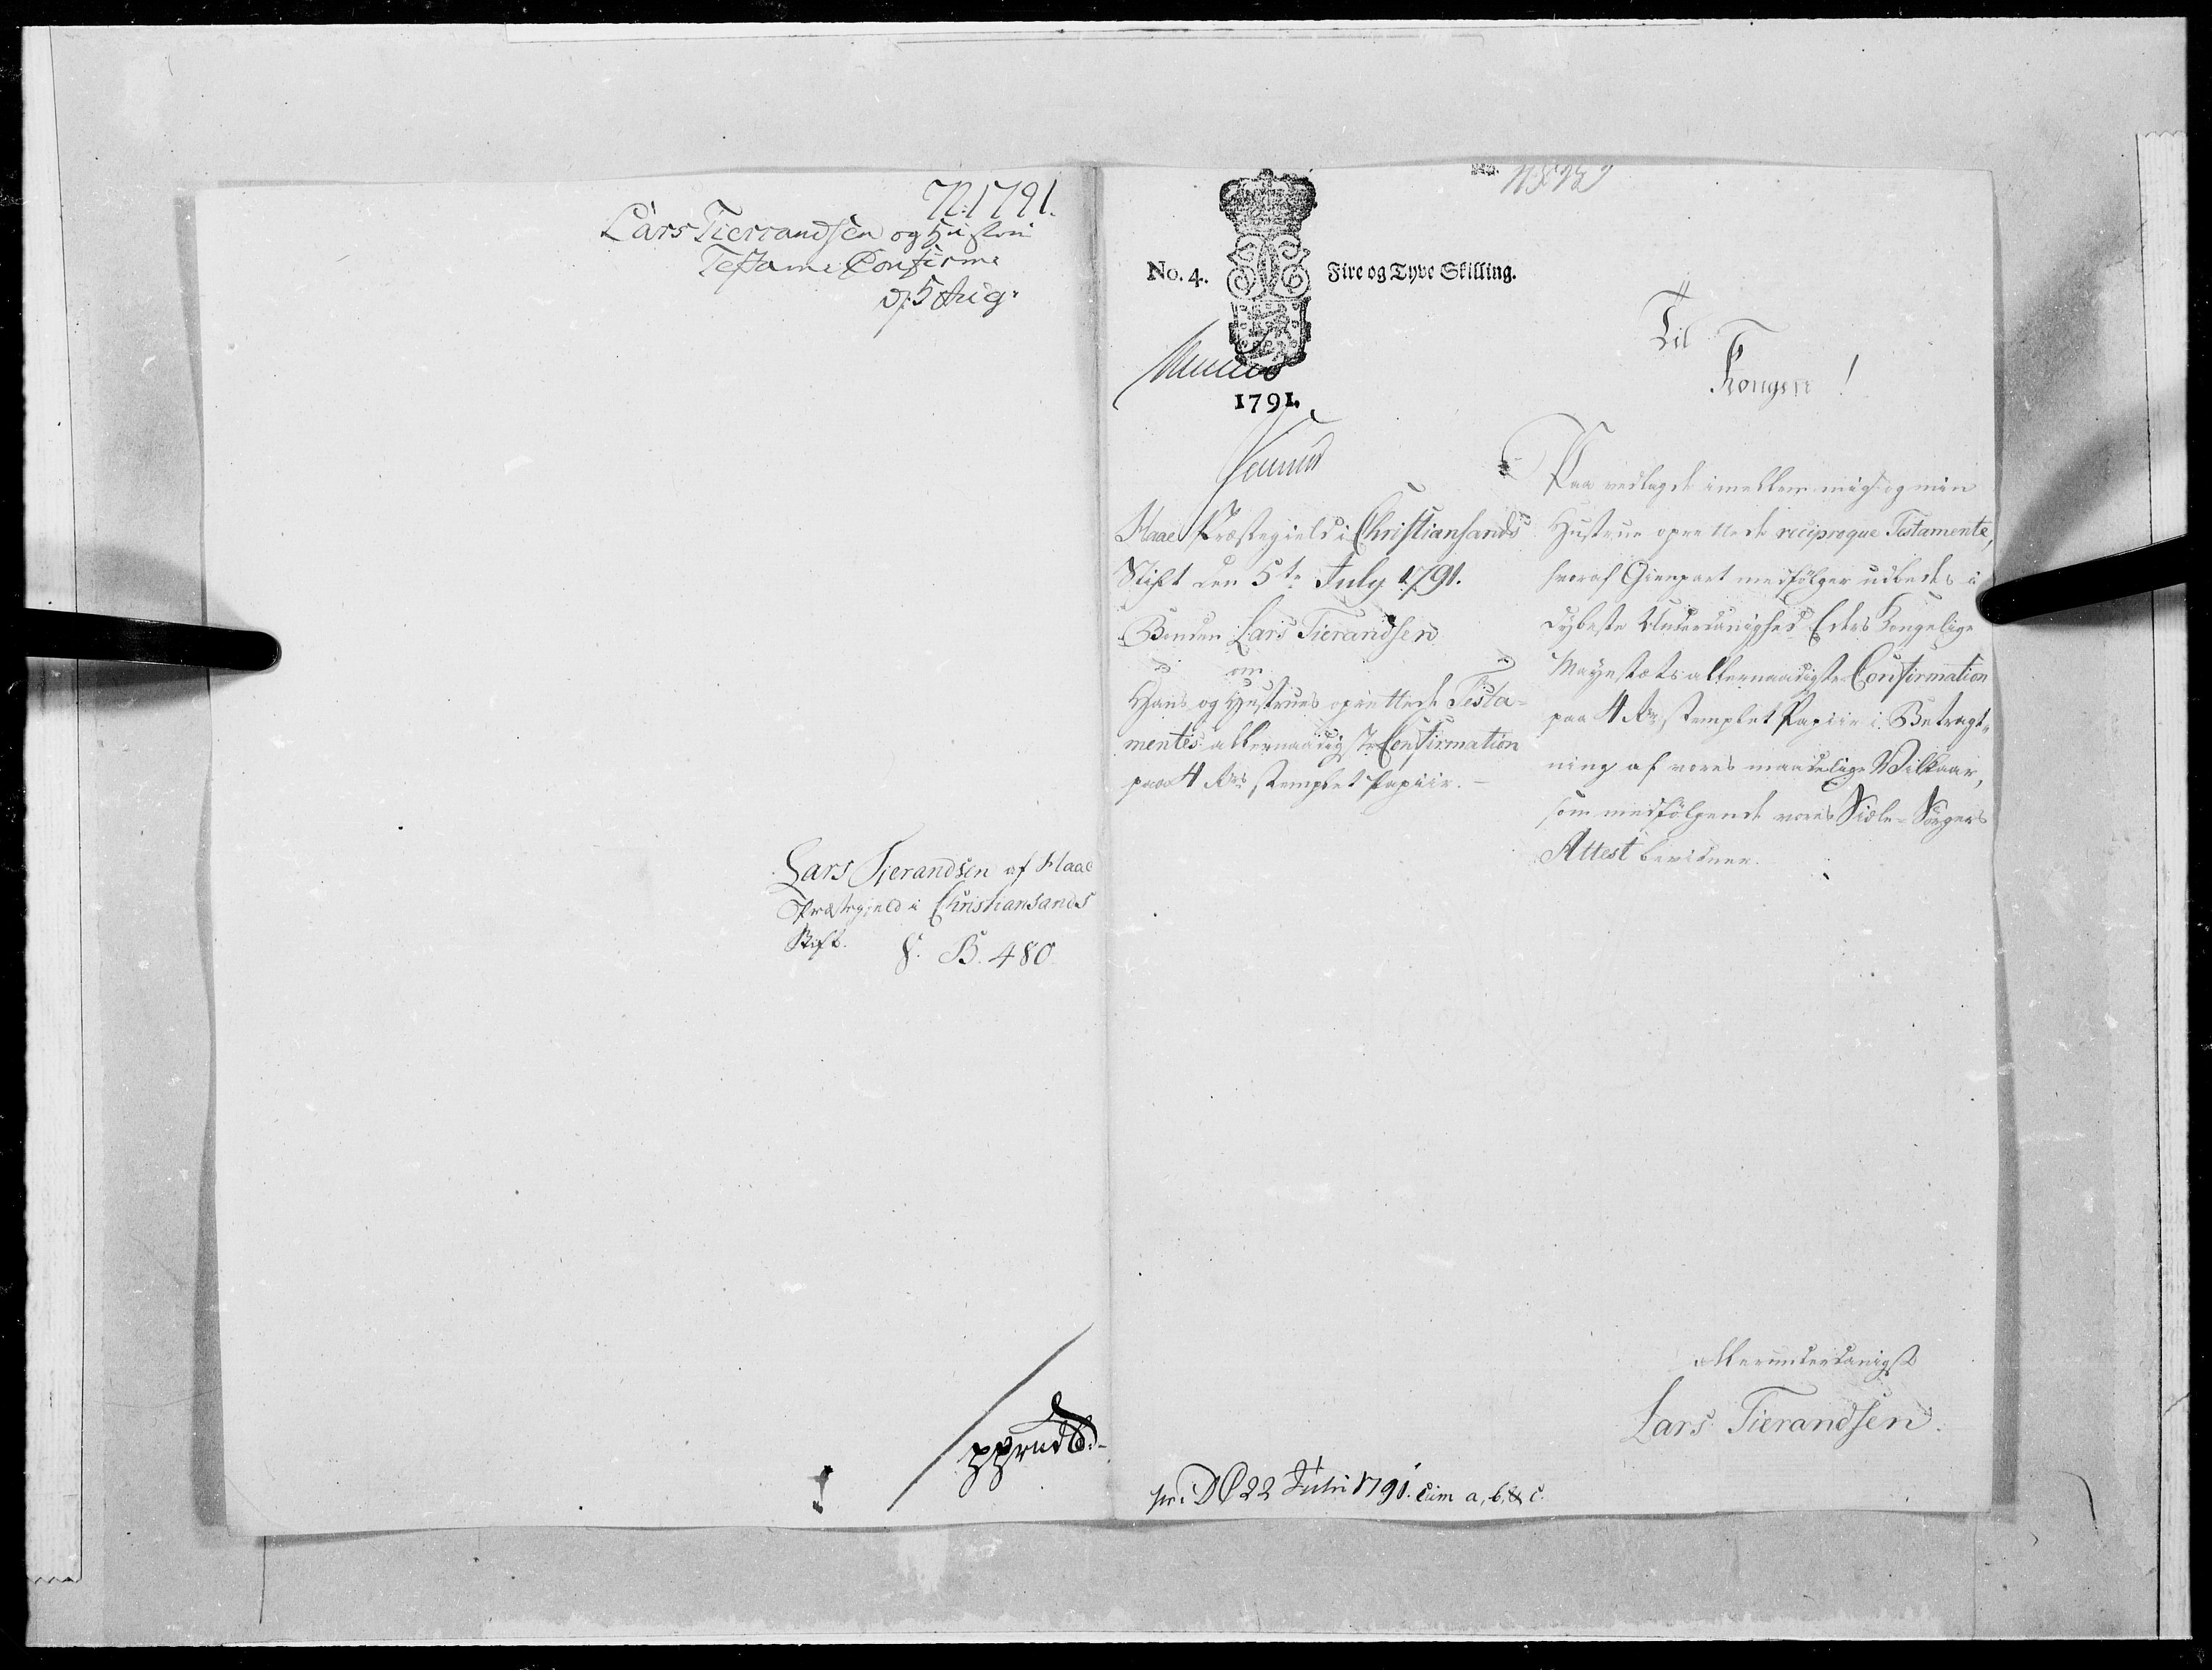 N: 1791.
Lars Tierrandsen og Hustru
Testam: Confirme
d: 5 Aug:
Lars Tierandsen af Haae
Præstegjeld i Christiansands
Stift.
F. B. 480
No. 4.
Fire og Tyve Skilling.
1791.
Til
Kongen!
Haae Præstegield i Christiansands
Stift den 5te July 1791.
Bonden Lars Tierandsen
om
Hans og Hustrues oprettede Testa-
mentes allernaadigste Confirmation
paa 4 Rdr stemplet Papiir. -
Paa vedlagde imellem mig og min
Hustrue oprettede reciproque Testamente,
hvoraf Gienpart medfølger udbedes i
dybeste Underdanighed Eders Kongelige
Mayestæts allernaadigste Confirmation
paa 4 Rdr stemplet Papiir i Betragt-
ning af vores maadelige Vilkaar,
som medfølgende vores Siæle-Sørgers
Attest beviidner.
Allerunderdanigst
Lars Tierandsen.
pr: DC 22 Julii 1791. cum a, b, & c.